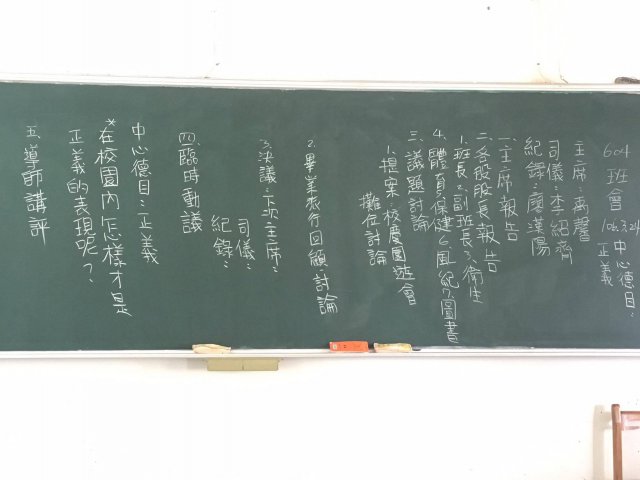 604班會 106.3.24 中心德目：正義
主席：禹馨
司儀：李紹齊
紀錄：廖漢陽
一、主席報告
二、各股股長報告
1.班長 2.副班長 3.衛生
4.體育 5.保健 6.風紀 7.圖書
三、議題討論
1.提案：校慶園遊會
攤位討論
2.畢業旅行回顧、討論
3.決議：下次：主席：
司儀：
紀錄：
四、臨時動議
中心德目：正義
*在校園內怎樣才是
正義的表現呢？
五、導師講評